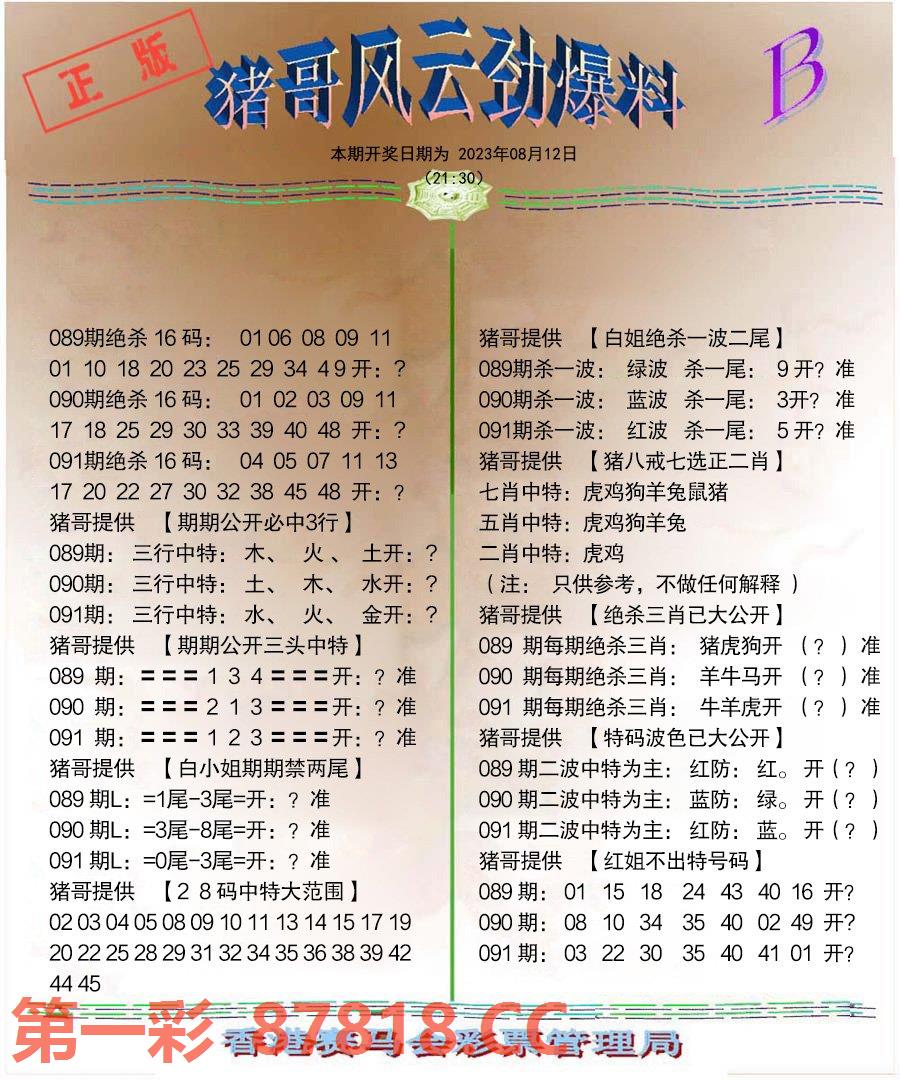 正版
猪哥风云劲爆料
B
本期开奖日期为 2023年08月12日
（21:30）
089期绝杀 16 码： 01 06 08 09 11
01 10 18 20 23 25 29 34 4 9 开：？
090期绝杀 16 码： 01 02 03 09 11
17 18 25 29 30 33 39 40 48 开：？
091期绝杀 16 码： 04 05 07 11 13
17 20 22 27 30 32 38 45 48 开：？
猪哥提供 【期期公开必中3行】
089期： 三行中特： 木、 火 、 土开：？
090期： 三行中特： 土、 木、 水开：？
091期： 三行中特： 水、 火、 金开：？
猪哥提供 【期期公开三头中特】
089 期：〓〓〓 1 3 4 〓〓〓开：？准
090 期：〓〓〓 2 1 3 〓〓〓开：？准
091 期：〓〓〓 1 2 3 〓〓〓开：？准
猪哥提供 【白小姐期期禁两尾】
089 期L：=1尾-3尾=开：？准
090 期L：=3尾-8尾=开：？准
091 期L：=0尾-3尾=开：？准
猪哥提供 【２８码中特大范围】
02 03 04 05 08 09 10 11 13 14 15 17 19
20 22 25 28 29 31 32 34 35 36 38 39 42
44 45
猪哥提供 【白姐绝杀一波二尾】
089期杀一波： 绿波 杀一尾： 9 开？准
090期杀一波： 蓝波 杀一尾： 3开？准
091期杀一波： 红波 杀一尾： 5 开？准
猪哥提供 【猪八戒七选正二肖】
七肖中特：虎鸡狗羊兔鼠猪
五肖中特：虎鸡狗羊兔
二肖中特：虎鸡
（注： 只供参考，不做任何解释 ）
猪哥提供 【绝杀三肖已大公开】
089 期每期绝杀三肖： 猪虎狗开 （？）准
090 期每期绝杀三肖： 羊牛马开 （？）准
091 期每期绝杀三肖： 牛羊虎开 （？）准
猪哥提供 【特码波色已大公开】
089 期二波中特为主：红防：红。开（？）
090 期二波中特为主：蓝防：绿。开（？）
091 期二波中特为主：红防：蓝。开（？）
猪哥提供 【红姐不出特号码】
089 期： 01 15 18 24 43 40 16 开？
090 期： 08 10 34 35 40 02 49 开？
091 期： 03 22 30 35 40 41 01 开？
第一彩 87818.CC
香港赛马会彩票管理局